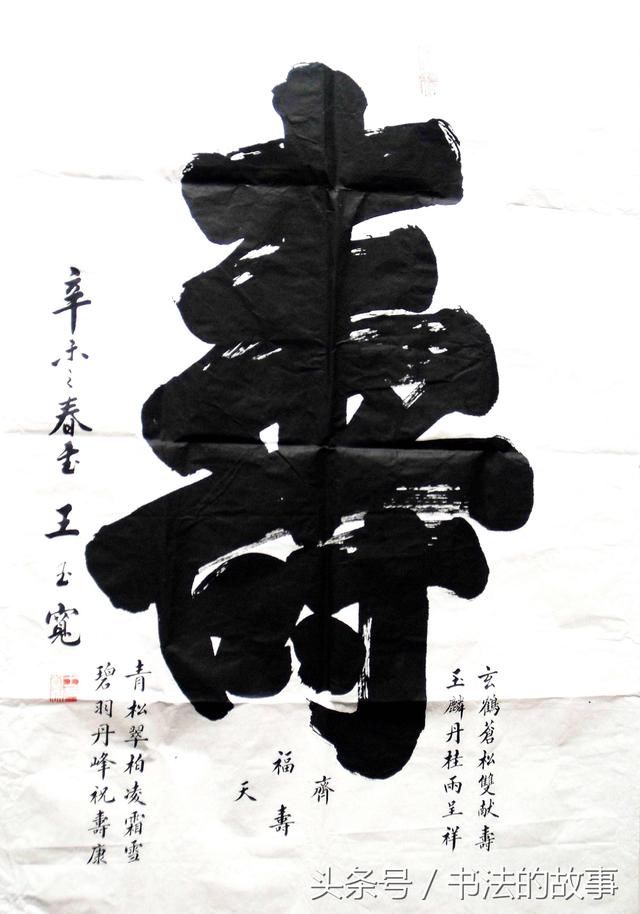 壽
玄鶴蒼松雙献壽
玉麟丹桂雨呈祥
齊
福壽
天
青松翠柏凌霜雪
碧羽丹峰祝壽康
辛未之春書王玉寬
头条号 / 书法的故事